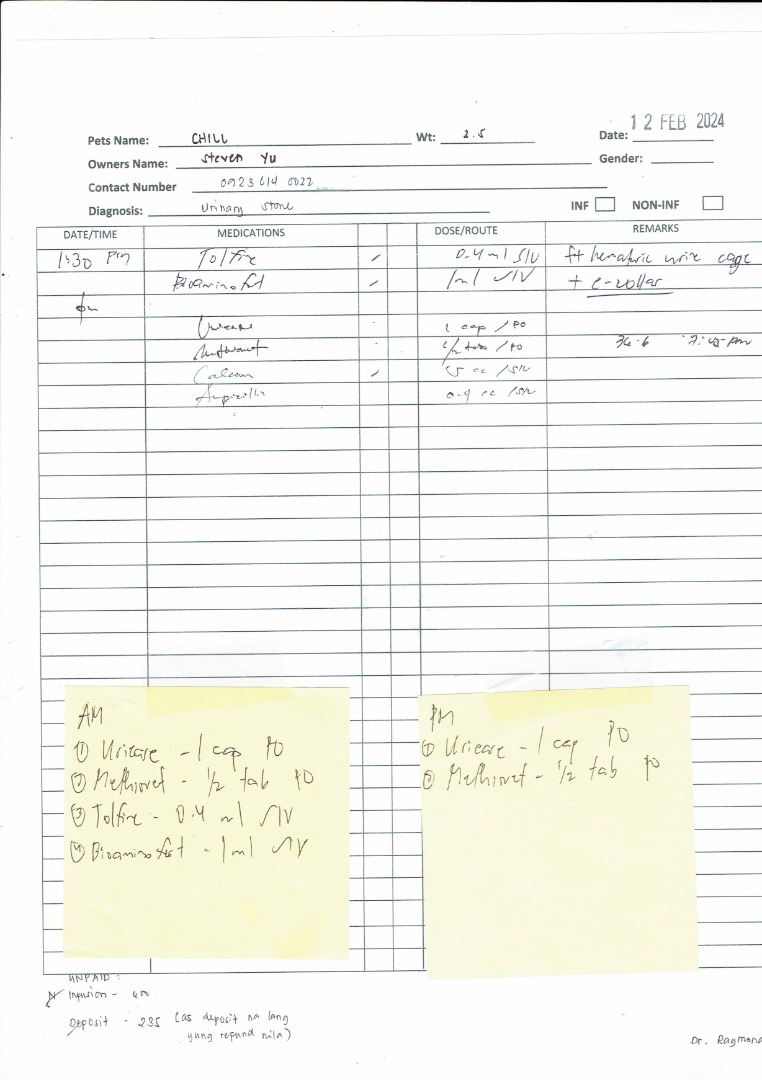 12 FEB 2024
Pets Name: CHILL Wt: 2.5 Date:
Owners Name: Steven Yu Gender:
Contact Number 0923 614 0022
Diagnosis: Urinary stone INF NON-INF
DATE/TIME MEDICATIONS DOSE/ROUTE REMARKS
1:30 PM Tolfine 0.4 ml SIV ft hematric wire cage
Bioaminofert 1ml SIV + e-collar
pm
Uricare 1 cap / PO
Methiovet 1/2 tab / PO 36.6 7:45 PM
cc / SIV
Ampicillin 0.9 cc / SIV
AM
① Uricare - 1 cap PO
② Methiovet - 1/2 tab PO
③ Tolfine - 0.4 ml SIV
④ Bioaminofert - 1ml SIV
PM
① Uricare - 1 cap PO
② Methiovet - 1/2 tab PO
UNPAID :
Infusion - 400
Deposit - 235 (as deposit na lang
yung refund nila)
Dr. Raymond